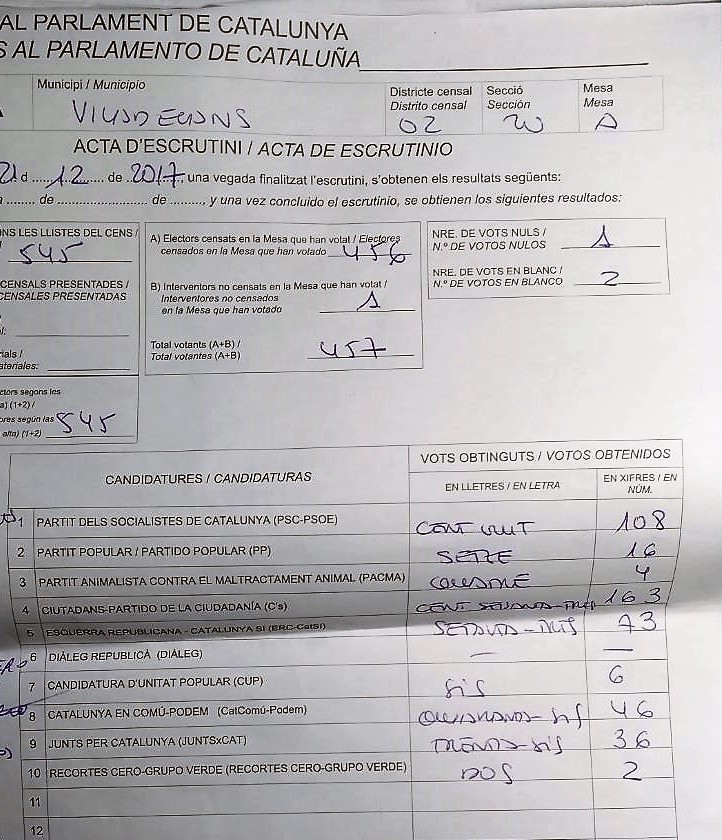 AL PARLAMENT DE CATALUNYA
S AL PARLAMENTO DE CATALUÑA
Municipi / Municipio
Districte censal
Distrito censal
Secció
Sección
Mesa
Mesa
02
A
ACTA D'ESCRUTINI / ACTA DE ESCRUTINIO
21 d ..... 12 ..... de 2017, una vegada finalitzat l'escrutini, s'obtenen els resultats següents:
........ de ........................... de ........., y una vez concluido el escrutinio, se obtienen los siguientes resultados:
NS LES LLISTES DEL CENS /
545
CENSALS PRESENTADES /
CENSALES PRESENTADAS
l:
ials /
ateriales:
ctors segons les
a) (1+2) /
ores según las
alta) (1+2)
545
A) Electors censats en la Mesa que han votat / Electores
censados en la Mesa que han votado 456
B) Interventors no censats en la Mesa que han votat /
Interventores no censados
en la Mesa que han votado 1
Total votants (A+B) /
Total votantes (A+B) 457
NRE. DE VOTS NULS /
N.º DE VOTOS NULOS 1
NRE. DE VOTS EN BLANC /
N.º DE VOTOS EN BLANCO 2
CANDIDATURES / CANDIDATURAS
VOTS OBTINGUTS / VOTOS OBTENIDOS
EN LLETRES / EN LETRA
EN XIFRES / EN
NÚM.
1 PARTIT DELS SOCIALISTES DE CATALUNYA (PSC-PSOE) CENT VUIT 108
2 PARTIT POPULAR / PARTIDO POPULAR (PP) SETZE 16
3 PARTIT ANIMALISTA CONTRA EL MALTRACTAMENT ANIMAL (PACMA) 4
4 CIUTADANS-PARTIDO DE LA CIUDADANÍA (C's) 163
5 ESQUERRA REPUBLICANA - CATALUNYA SÍ (ERC-CatSí) 73
6 DIÀLEG REPUBLICÀ (DIÀLEG) — —
7 CANDIDATURA D'UNITAT POPULAR (CUP) SIS 6
8 CATALUNYA EN COMÚ-PODEM (CatComú-Podem) 46
9 JUNTS PER CATALUNYA (JUNTSxCAT) TRENTA-SIS 36
10 RECORTES CERO-GRUPO VERDE (RECORTES CERO-GRUPO VERDE) DOS 2
11
12